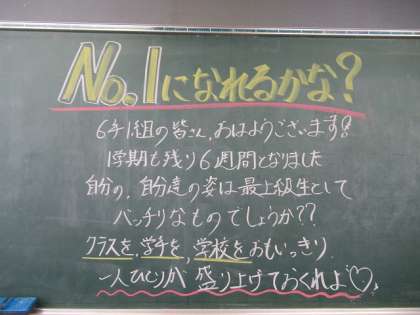 No.1になれるかな?
6年1組の皆さん、おはようございます!
1学期も残り6週間となりました
自分の、自分達の姿は最上級生として
バッチリなものでしょうか??
クラスを、学年を、学校をおもいっきり
一人ひとりが盛り上げておくれよ♡。